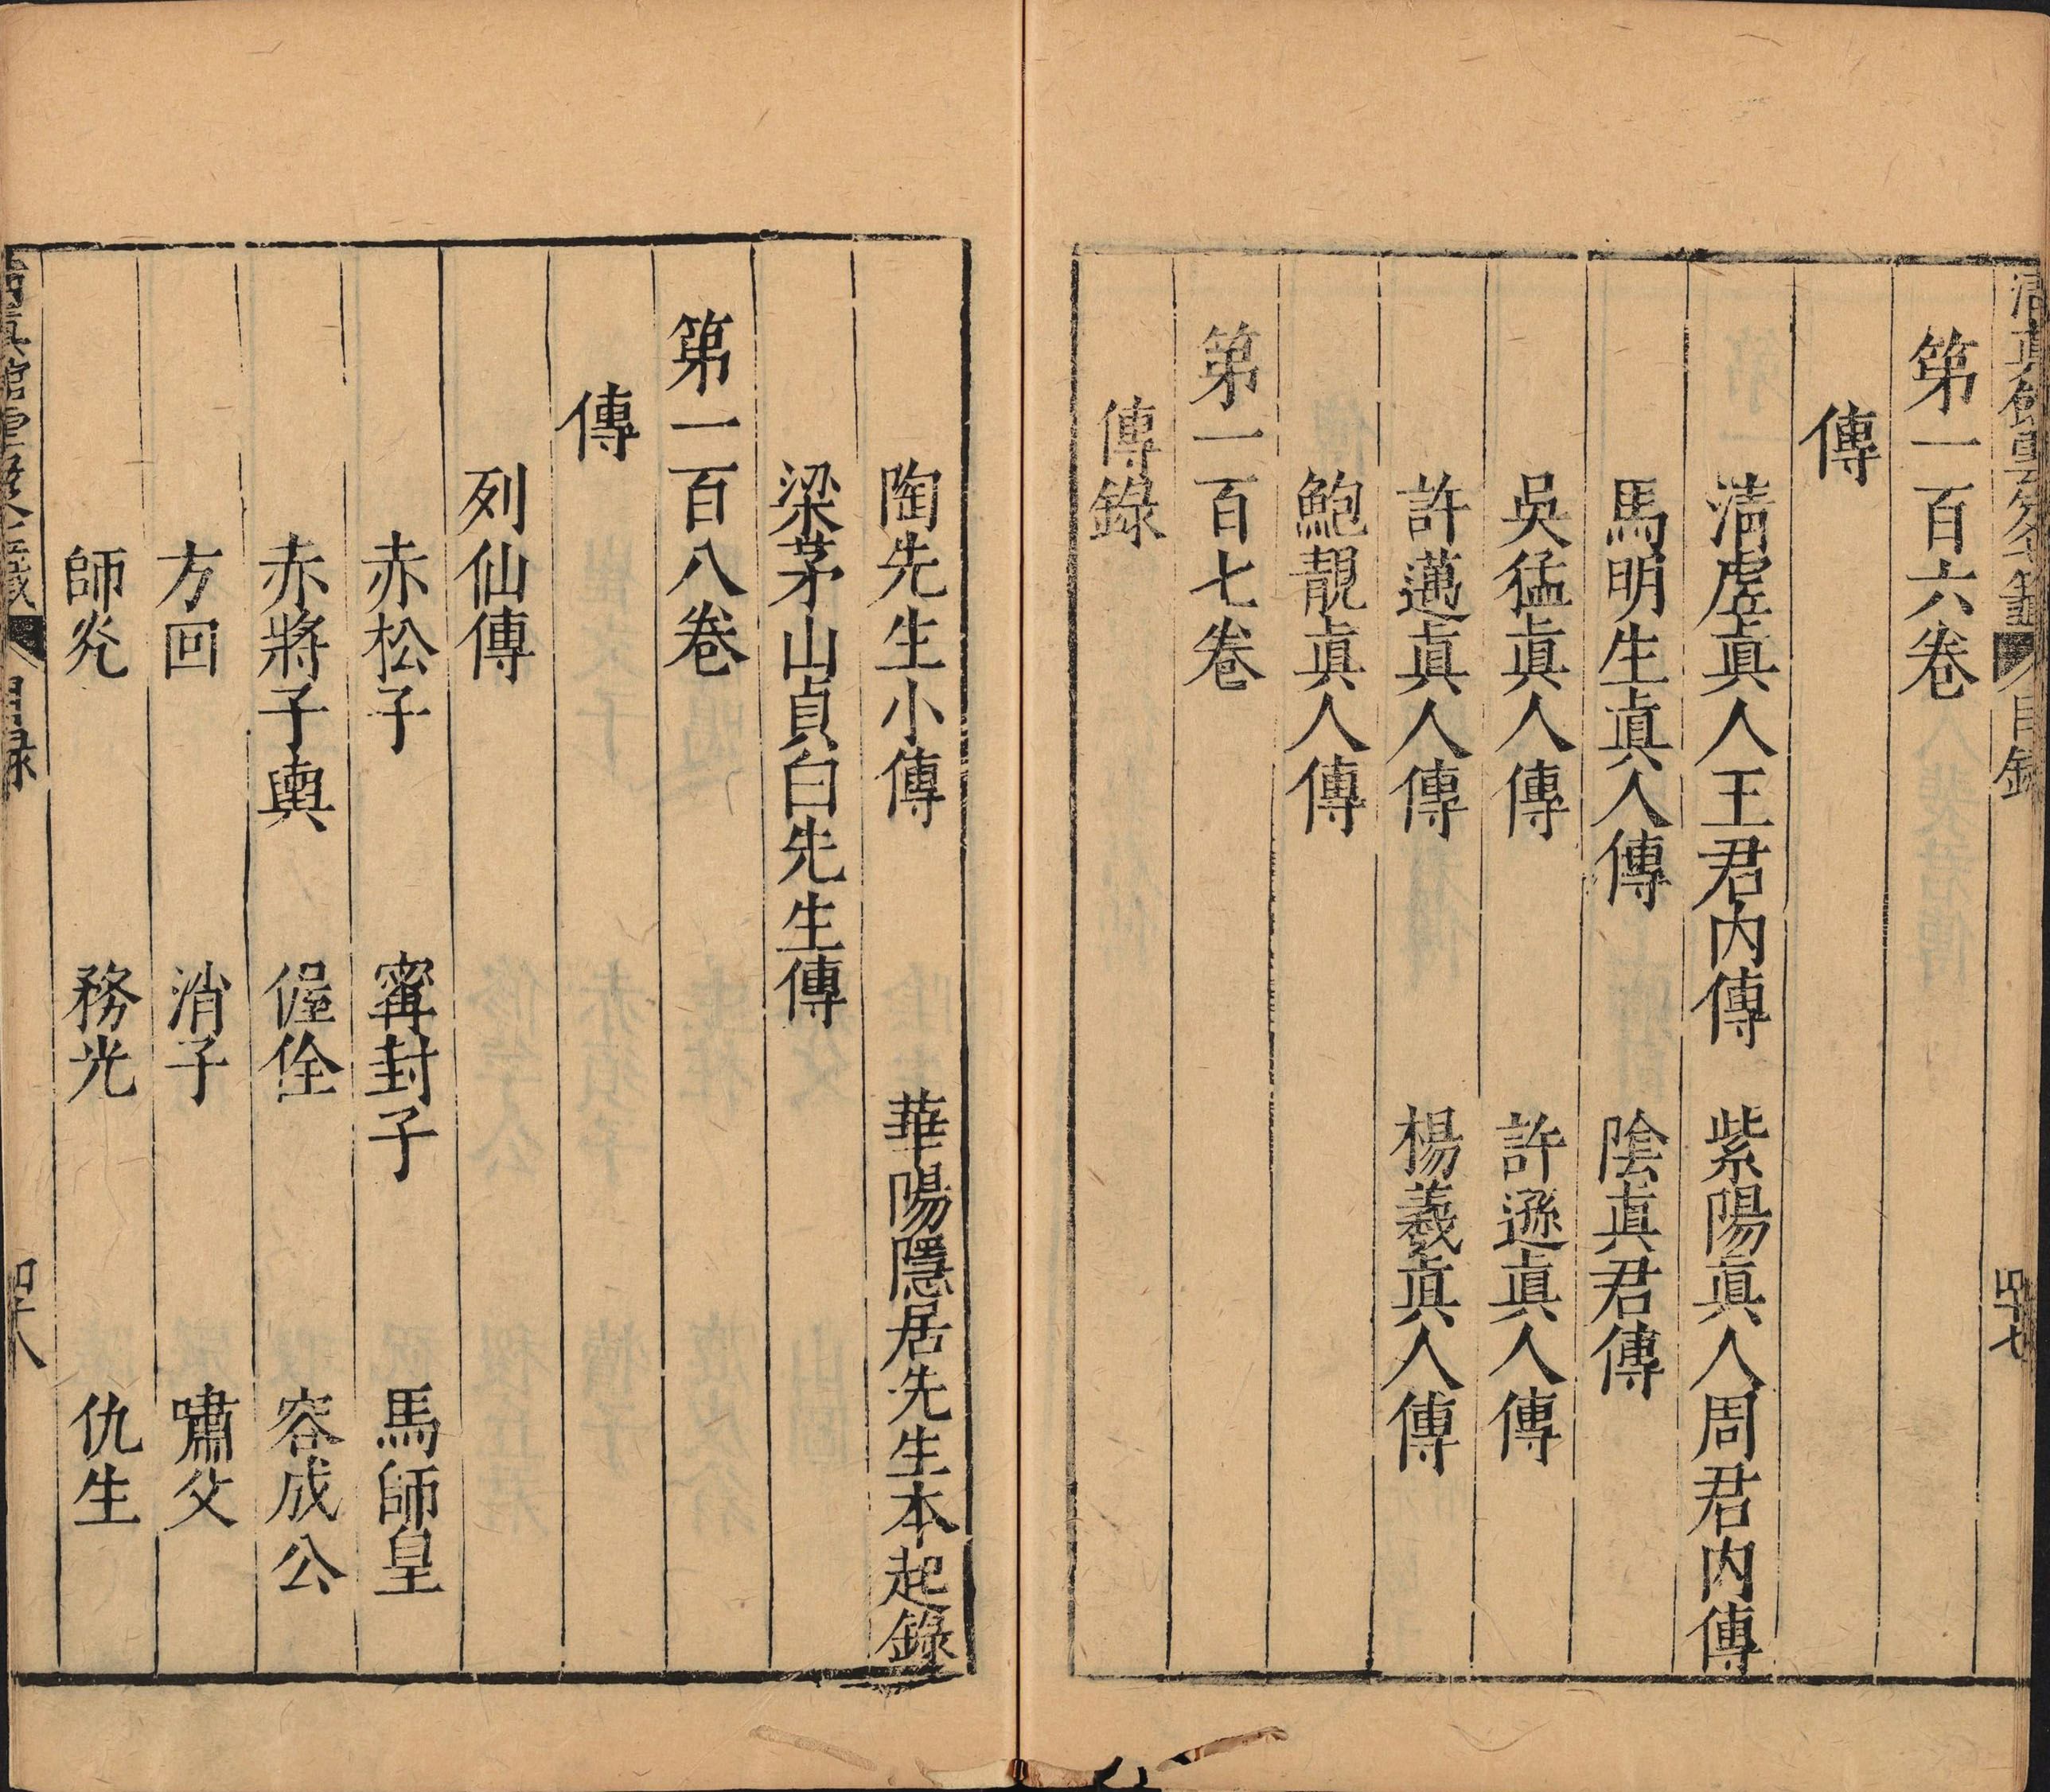 清真館雲笈七籤 目錄 四十七
第一百六卷
傳
清虛眞人王君內傳 紫陽眞人周君內傳
馬明生眞人傳 陰眞君傳
吳猛眞人傳 許遜眞人傳
許邁眞人傳 楊羲眞人傳
鮑靚眞人傳
第一百七卷
傳錄
陶先生小傳 華陽隱居先生本起錄
梁茅山貞白先生傳
第一百八卷
傳
列仙傳
赤松子 甯封子 馬師皇
赤將子輿 偓佺 容成公
方回 消子 嘯父
師灮 務光 仇生
清真館雲笈七籤 目錄 四十八